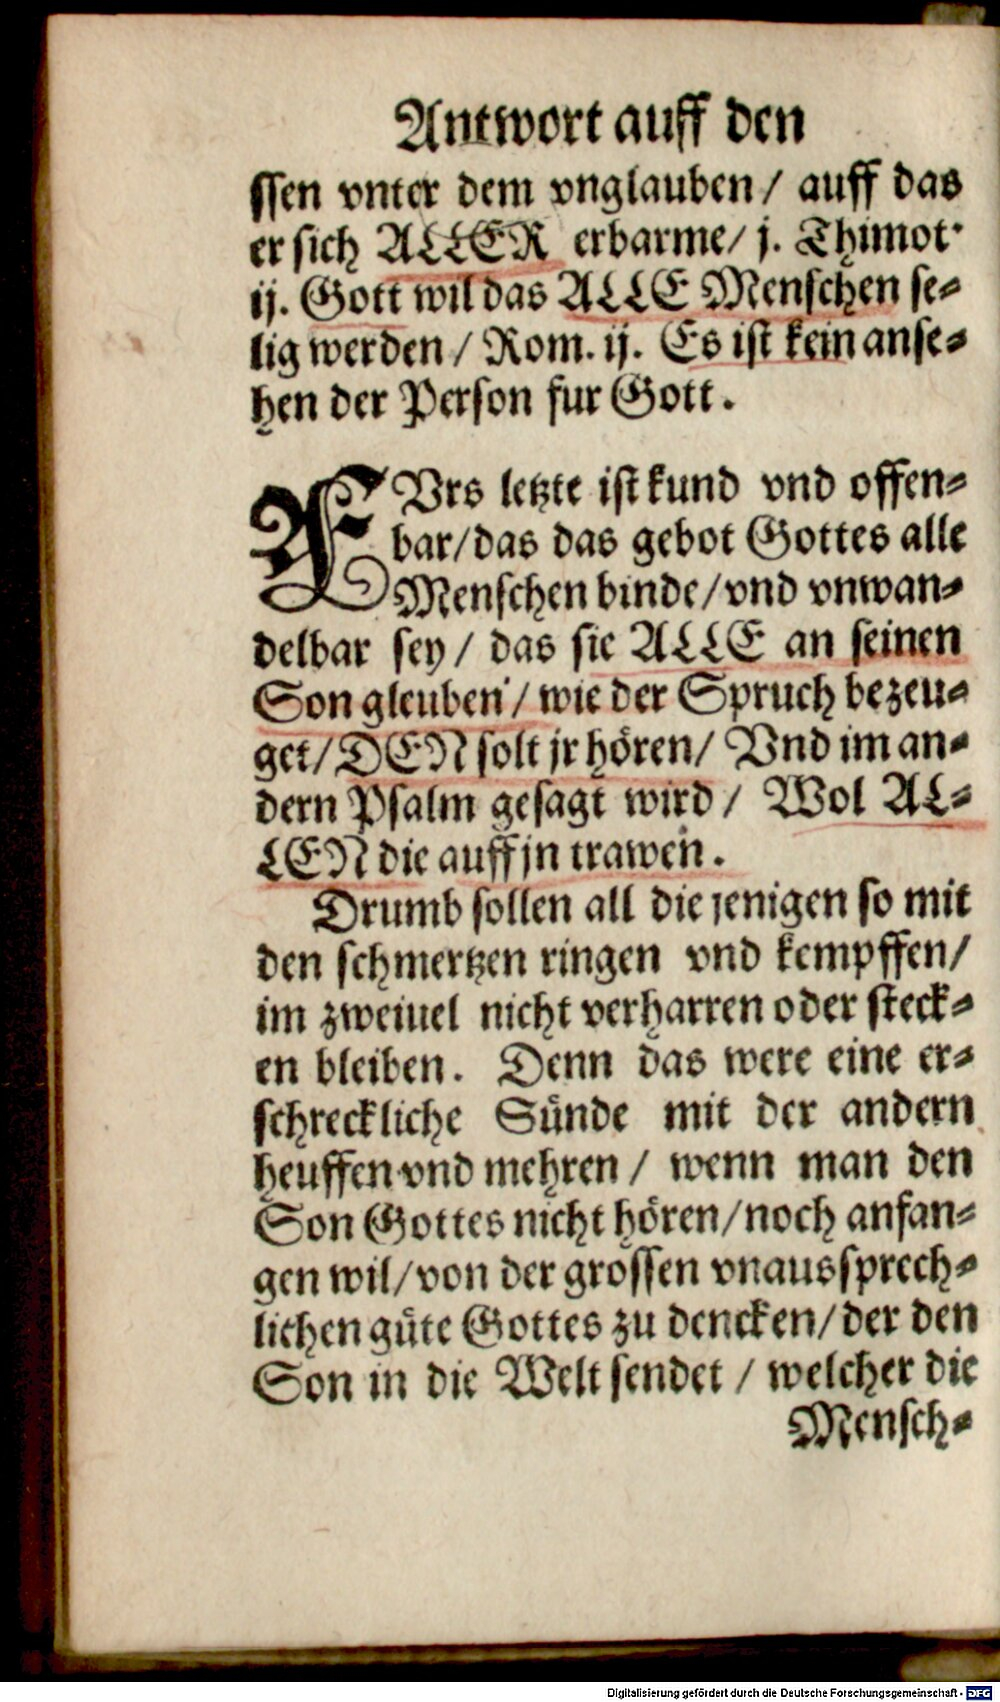 Antwort auff den
ssen vnter dem vnglauben / auff das
er sich ALLER erbarme / j. Thimot.
ij. Gott wil das ALLE Menschen se⸗
lig werden / Rom. ij. Es ist kein anse⸗
hen der Person fur Gott.
AVrs letzte ist kund vnd offen⸗
bar / das das gebot Gottes alle
Menschen binde / vnd vnwan⸗
delbar sey / das sie ALLE an seinen
Son gleuben / wie der Spruch bezeu⸗
get / DEN solt jr hören / Vnd im an⸗
dern Psalm gesagt wird / Wol AL⸗
LEN die auff jn trawen.
Drumb sollen all die jenigen so mit
den schmertzen ringen vnd kempffen /
im zweiuel nicht verharren oder steck⸗
en bleiben. Denn das were eine er⸗
schreckliche Sünde mit der andern
heuffen vnd mehren / wenn man den
Son Gottes nicht hören / noch anfan⸗
gen wil / von der grossen vnaussprech⸗
lichen güte Gottes zu dencken / der den
Son in die Welt sendet / welcher die
Mensch⸗
Digitalisierung gefördert durch die Deutsche Forschungsgemeinschaft - DFG